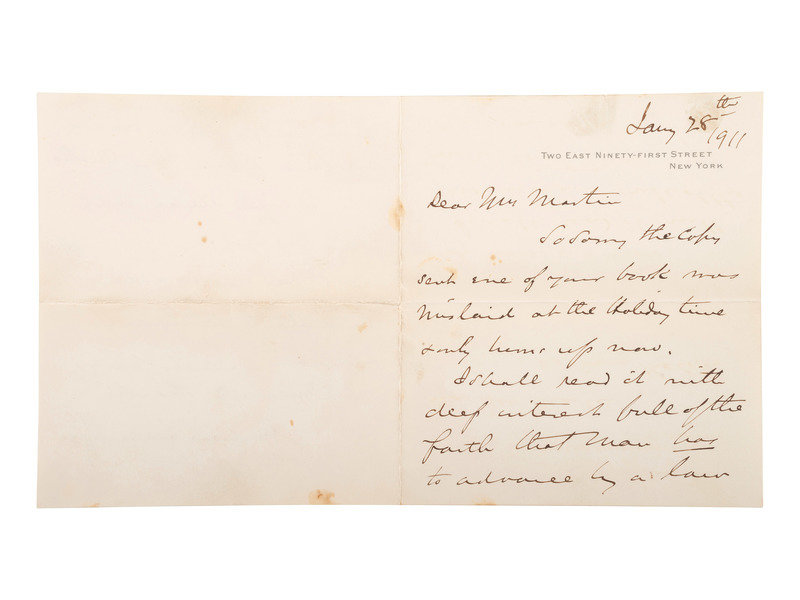 Jany 28th
1911
TWO EAST NINETY-FIRST STREET
NEW YORK
Dear Mrs Martin
So Sorry the Copy
sent me of your book was
mislaid at the Holiday time
& only turns up now.
I Shall read it with
deep interest full of the
faith that Man has
to advance by a law